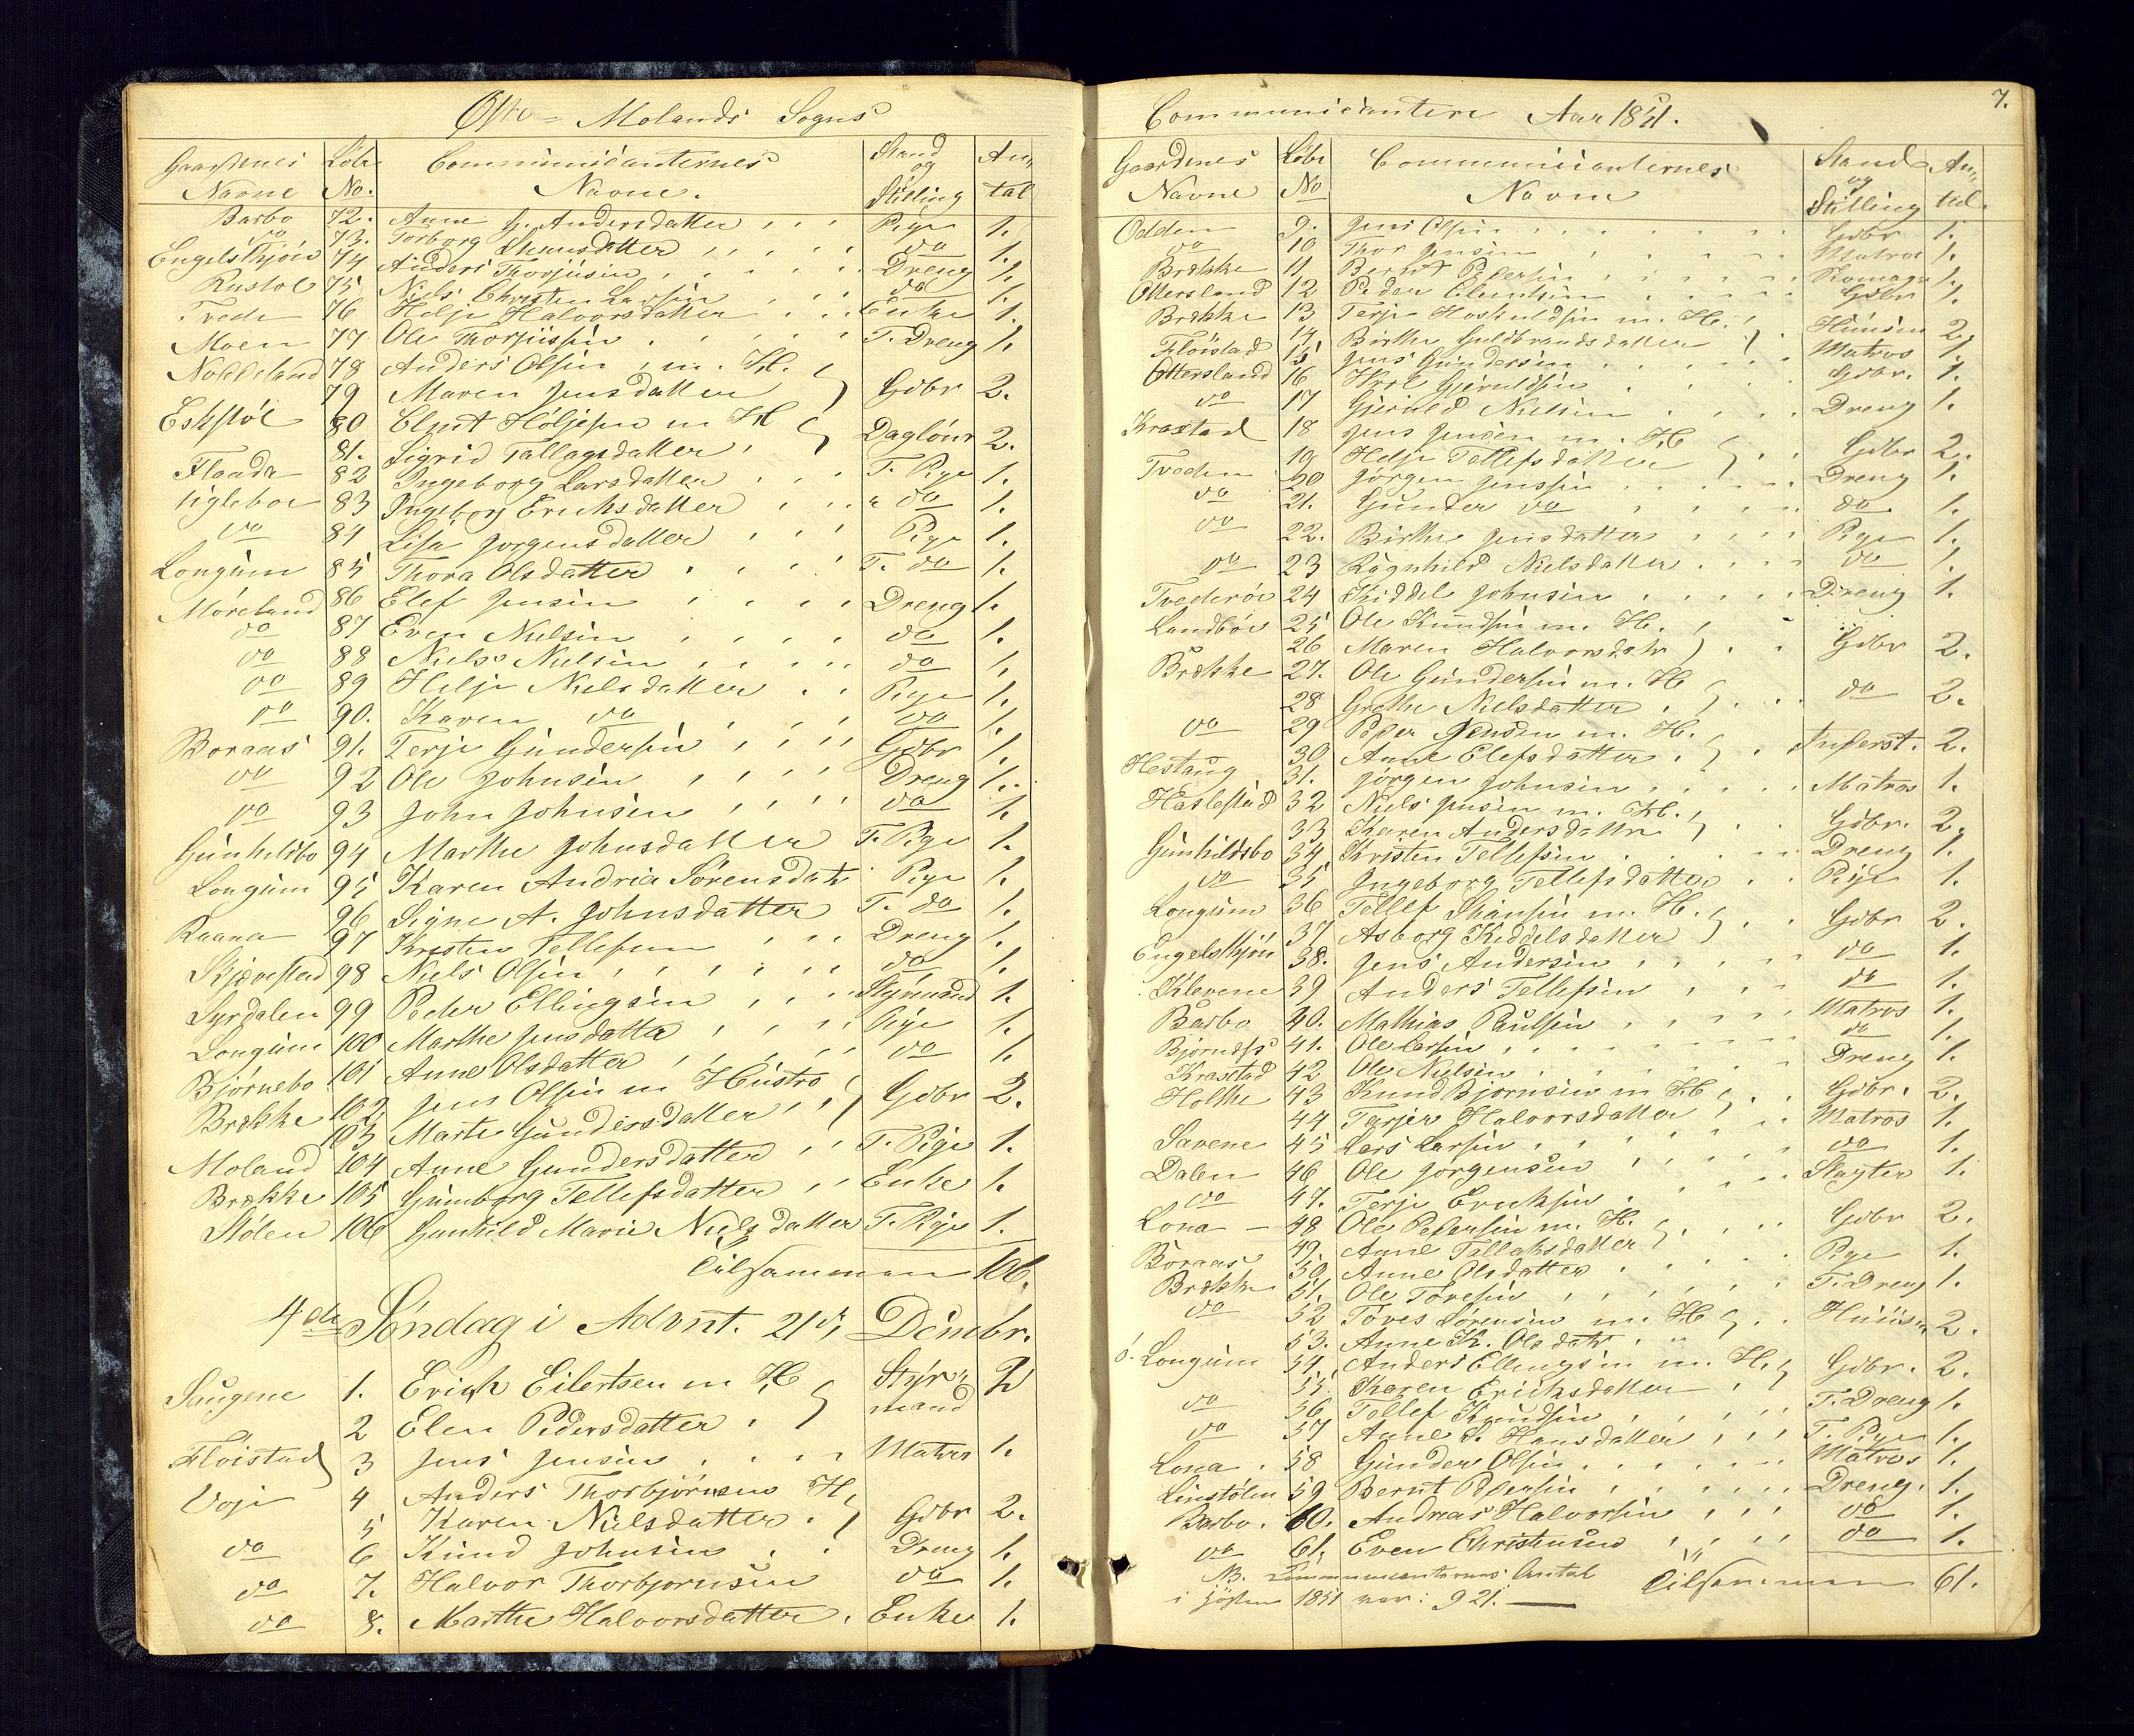 Øste = Molands Sogns
Gaardenes Navne | Löbe No. | Communicanternes Navne. | Stand og Stilling | An,, tal
Barbo 72. Anne G. Andersdatter Pige 1.
do 73. Torborg Hansdatter do 1.
Engelskjön 74 Anders Thorjusen Dreng 1.
Rustöl 75 Niels Christen Larsen do 1.
Tvede 76 Helje Halvorsdatter Enke 1.
Moen 77 Ole Thorjusen T. Dreng 1.
Noddeland 78 Anders Olsen m. H.
79 Maren Jensdatter Gdbr 2.
Eskstöl 80 Elmt Höljesen m H
81. Sigrid Tallagsdatter Daglönr 2.
Flaada 82 Ingeborg Larsdatter T. Pige 1.
Ugleboe 83 Ingeborg Erichsdatter " do 1.
do 84 Lisa Jorgensdatter Pige 1.
Longum 85 Thora Olsdatter T. do 1.
Möreland 86 Elef Jensen Dreng 1.
do 87 Even Nielsen do 1.
do 88 Niels Nielsen do 1.
do 89 Helje Nielsdatter Pige 1.
do 90. Karen do do 1.
Boraas 91. Terje Gundersen Gdbr 1.
do 92 Ole Johnsen Dreng 1.
do 93 John Johnsen do 1.
Gunheldbo 94 Marthe Johnsdatter T. Pige 1.
Longum 95 Karen Andria Sörensdatr Pige 1.
96 Signe A. Johnsdatter T. do 1.
Raana 97 Kristen Tellefsen Dreng 1.
Skjævestad 98 Niels Olsen do 1.
Syrdalen 99 Peder Ellingsen Styrmand 1.
Longum 100 Marthe Jensdatter Pige 1.
Björnebo 101 Anne Olsdatter do 1.
Brekke 102 Jens Olsen m Hustro
103 Marte Gundersdatter Gdbr 2.
Moland 104 Anne Gundersdatter T. Pige 1.
Brekke 105 Gunborg Tellefsdatter Enke 1.
Stölen 106 Gunhild Marie Nielsdatter T. Pige 1.
Tilsammen 106.
4de Söndag i Advent. 21de Dcmbr.
Saugene 1. Erich Eilertsen m H Styr,, mand 2
2 Elen Pedersdatter
Flöistad 3 Jens Jensen Matros 1.
Voje 4 Anders Thorbjörnsen H
5 Karen Nielsdatter Gdbr 2.
do 6 Knud Johnsen Dreng 1.
do 7. Halvor Thorbjornsen do 1.
do 8. Marthe Halvorsdatter Enke 1.
Communicantere Aar 1851.
7.
Gaardenes Navne | Löbe No | Communicanternes Navne | Stand og Stilling | An,, tal.
Odden 9. Jens Olsen Gdbr 1.
do 10 Thor Jensen Matros 1.
Brekke 11 Bernt Pedersen 1.
Ottersland 12 Peder Gdbr 1.
Brekke 13 Terje m. H.
14 Birthe Guldbrandsdatter Huusm 2,
Flöistad 15 Jens Gundersen Matros 1.
Ottersland 16 Gjeruldsen Gdbr. 1.
do 17 Gjeruld Nielsen Dreng 1.
Krastad 18 Jens Jensen m. H
19 Helje Tellefsdatter Gdbr 2.
Tveden 20 Jörgen Jenssen Dreng 1.
do 21. Gunder do do. 1.
do 22. Birthe Jensdatter Pige 1.
do 23 Ragnhild Nielsdatter do 1.
Tvederöe 24 Kiddel Johnsen Dreng 1.
Landböe 25 Ole Knudsen m. H.
26 Maren Halvorsdatr Gdbr 2.
Brekke 27. Ole Gundersen m. H
28 Grethe Nielsdatter do 2.
do 29 Peder Jensen m. H.
30. Anne Elefsdatter Inderst. 2.
Hestaug 31. Jörgen Johnsen Matros 1.
Haslestad 32 Niels Jensen m. H.
33 Karen Andersdatter Gdbr. 2.
Gunhildsbo 34 Kristen Tellefsen Dreng 1.
do 35 Ingeborg Tellefsdatter Pige 1.
Longum 36 Tellef m. H.
37 Asborg Kiddelsdatter Gdbr 2.
Engelskjön 38. Jens Andersen do 1.
Klevene 39 Anders Tellefsen do 1.
Barbo 40. Mathias Paulsen Matros 1.
41. Ole Larsen do 1.
Krastad 42 Ole Nielsen Dreng 1.
Holthe 43 Knud Bjornsen m H
44 Tarjer Halvorsdatter Gdbr. 2.
Savene 45 Lars Larsen Matros 1.
Dalen 46 Ole Jorgensen do 1.
do 47. Terje Ericksen 1.
Lona 48 Ole Pedersen m. H.
49. Anne Tallaksdatter Gdbr 2.
Boraas 50. Anne Olsdatter Pige 1.
Brekke 51. Ole Toresen T. Dreng 1.
do 52 Töres Sörensen m. H
53. Anne K. Olsdatr Huusm 2.
ö. Longum 54. Anders Ellingsen m. H.
55. Karen Ericksdatter Gdbr. 2.
do 56 Tellef Knudsen T. Dreng 1.
do 57 Anne S. Hansdatter T. Pige 1.
Lona 58 Gunder Olsen Matros 1.
Linstölen 59 Bernt Pedersen Dreng. 1.
Barbo. 60. Andreas Halvorsen do 1.
do 61. Even Christensen do 1.
NB. Communicanternes Antal Tilsammen 61.
i 1851 var: 921.